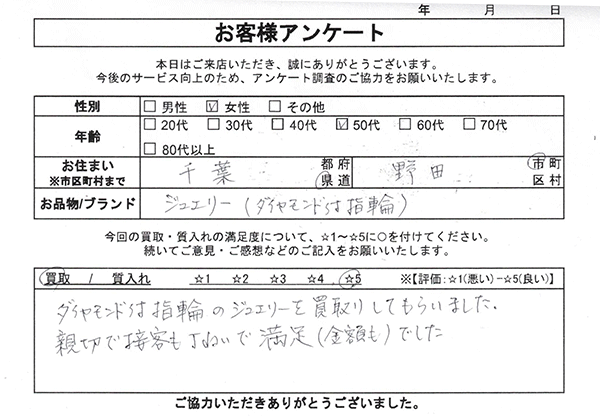 年 月 日
お客様アンケート
本日はご来店いただき、誠にありがとうございます。
今後のサービス向上のため、アンケート調査のご協力をお願いいたします。
性別 □ 男性 ☑ 女性 □ その他
年齢 □ 20代 □ 30代 □ 40代 ☑ 50代 □ 60代 □ 70代
□ 80代以上
お住まい 千葉 都 府 野田 市 町
※市区町村まで 県 道 区 村
お品物/ブランド ジュエリー(ダイヤモンド付指輪)
今回の買取・質入れの満足度について、☆1～☆5に○を付けてください。
続いてご意見・ご感想などのご記入をお願いいたします。
買取 / 質入れ ☆1 ☆2 ☆3 ☆4 ☆5 ※【評価:☆1(悪い)−☆5(良い)】
ダイヤモンド付指輪のジュエリーを買取りしてもらいました.
親切で接客も丁ねいで満足(金額も)でした
ご協力いただきありがとうございました。